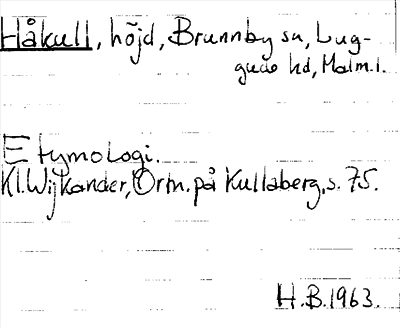 Håkull, höjd, Brunnby sn, Lug-
gude hd, Malm.l.
Etymologi.
Kl. Wijkander, Ortn. på Kullaberg, s. 75.
H.B. 1963.